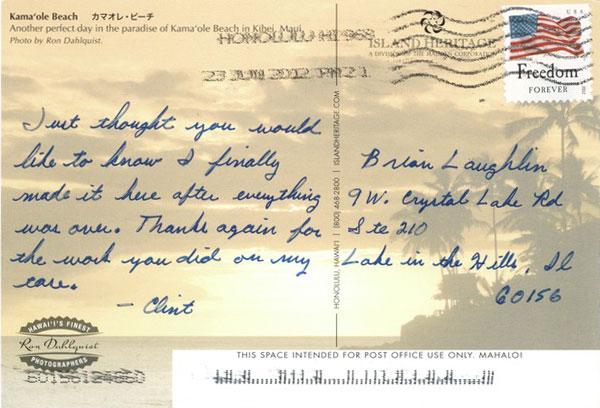 Kama'ole Beach カマオレ・ビーチ
Another perfect day in the paradise of Kama'ole Beach in Kihei, Maui.
Photo by Ron Dahlquist.
HONOLULU HI 968
23 JUN 2012 PM 2 1
ISLAND HERITAGE
A DIVISION OF THE MADDEN CORPORATION
USA
Freedom
FOREVER
Just thought you would
like to know I finally
made it here after everything
was over. Thanks again for
the work you did on my
care.
- Clint
HONOLULU, HAWAI'I | (800) 468-2800 | ISLANDHERITAGE.COM
Brian Laughlin
9 W. Crystal Lake Rd
Ste 210
Lake in the Hills, Il
60156
HAWAI'I'S FINEST
Ron Dahlquist
PHOTOGRAPHERS
THIS SPACE INTENDED FOR POST OFFICE USE ONLY. MAHALO!